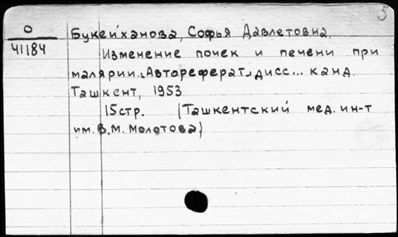 5
О
41184
Букейханова, Софья Давлетовна.
Изменение почек и печени при
малярии. Автореферат дисс... канд.
Ташкент, 1953
15стр. (Ташкентский мед. ин-т
им. В.М. Молотова)